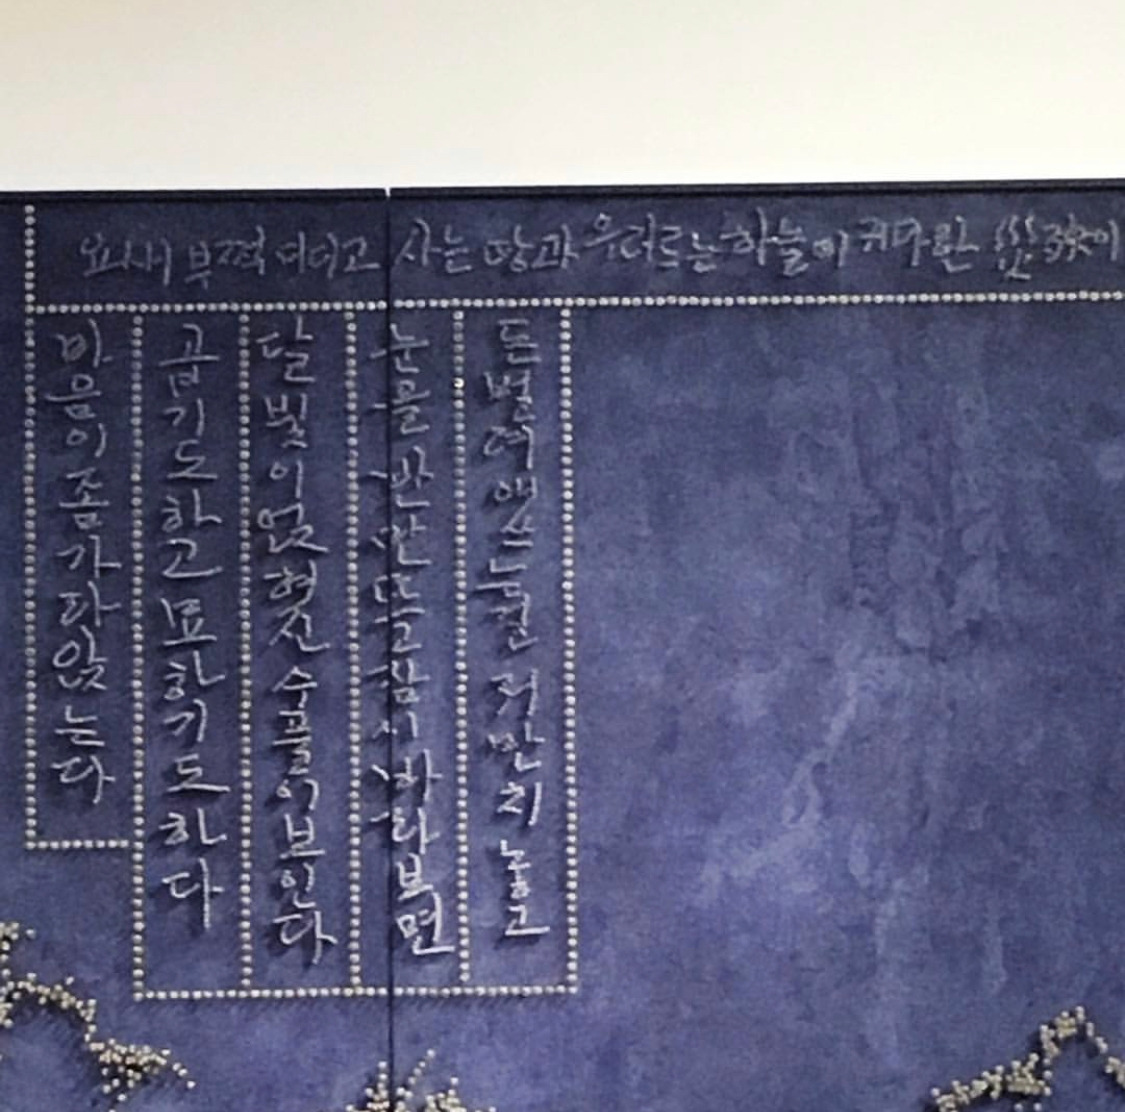 요새 부쩍 디디고 사는 땅과 우러르는 하늘이 커다란
돈 벌여 애쓰는 걸 저만치 놓고
눈을 반만 잠시 바라보면
달빛이 수풀이 보인다
곱기도 하고 묘하기도 하다
마음이 좀 가라앉는다